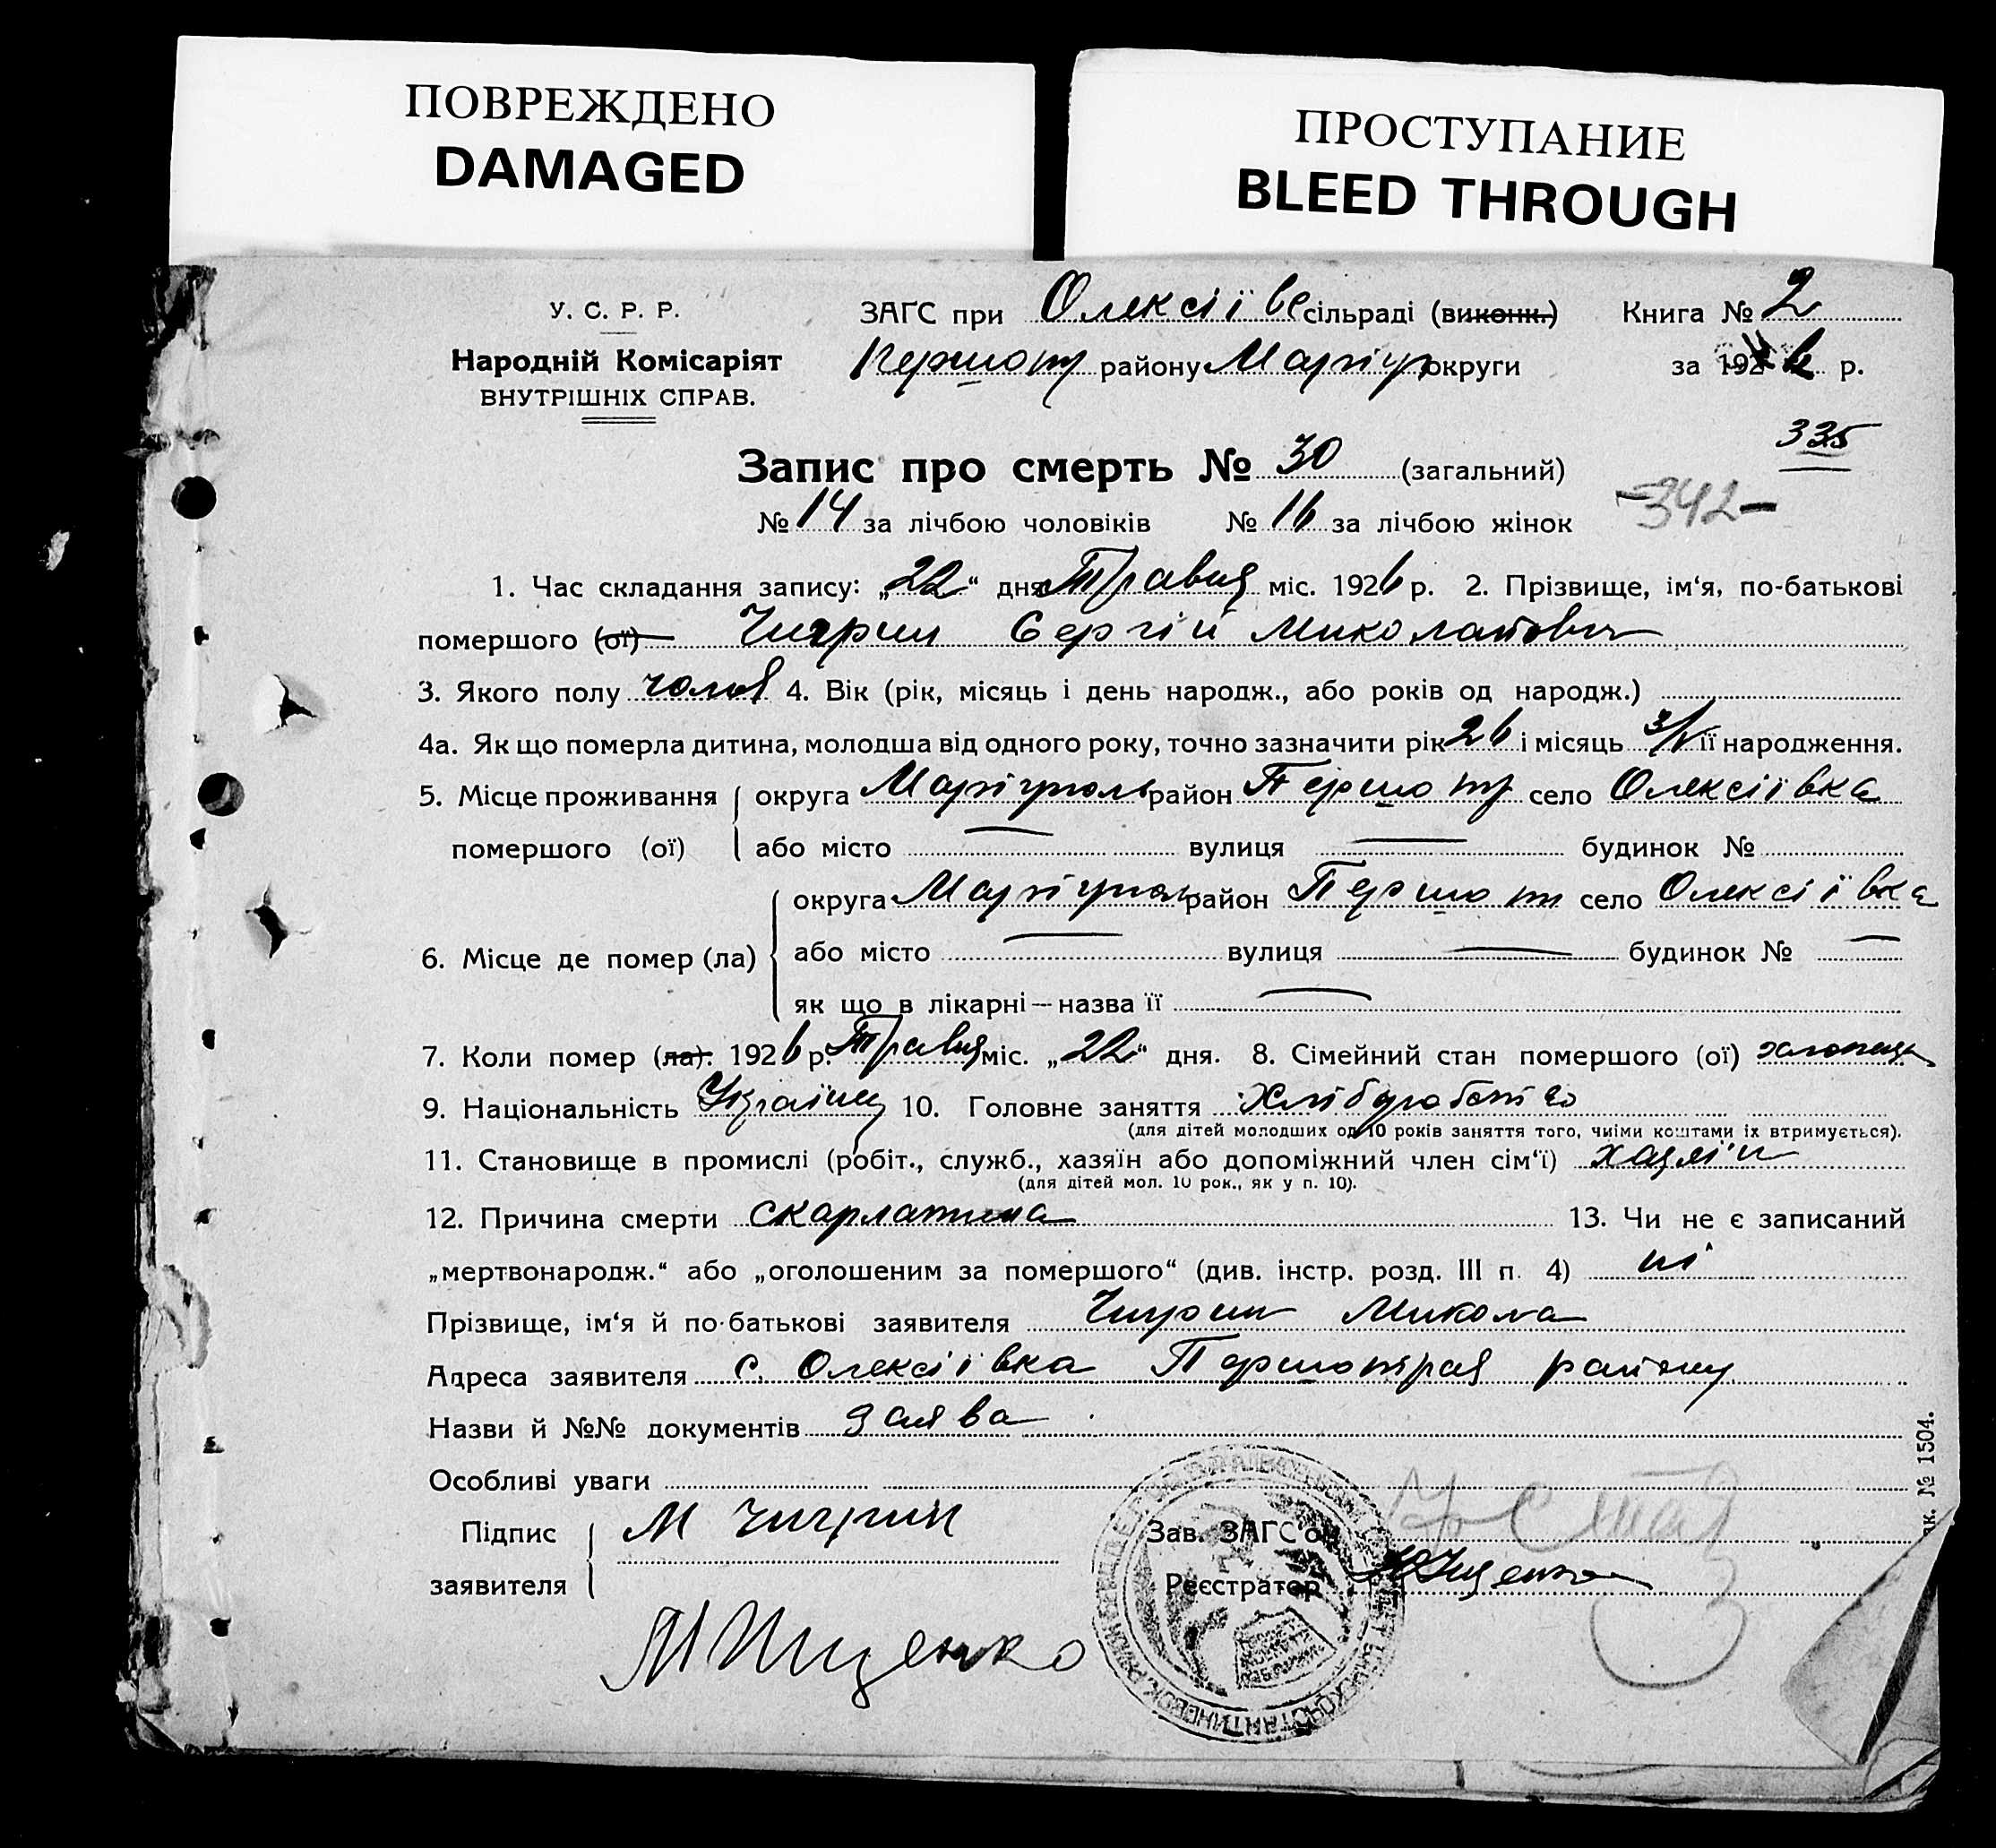 ПОВРЕЖДЕНО
DAMAGED
ПРОСТУПАНИЕ
BLEED THROUGH
У. С. Р. Р.
Народній Комісаріят
ВНУТРІШНІХ СПРАВ.
ЗАГС при Олексіївс сільраді (виконк.) Книга № 2
Першот району Маріуп округи за 1926 р.
335
Запис про смерть № 30 (загальний)
-342-
№ 14 за лічбою чоловіків № 16 за лічбою жінок
1. Час складання запису: „22“ дня Травня міс. 1926 р. 2. Прізвище, ім‘я, по-батькові
помершого (ої) Чигрин Сергій Миколайович
3. Якого полу чолов 4. Вік (рік, місяць і день народж., або років од народж.)
4а. Як що померла дитина, молодша від одного року, точно зазначити рік 26 і місяць 3/V її народження.
5. Місце проживання помершого (ої) округа Маріуполь район Першотр село Олексіївка
або місто — вулиця — будинок №
6. Місце де помер (ла) округа Маріуполь район Першот село Олексіївка
або місто — вулиця — будинок № —
як що в лікарні — назва її —
7. Коли помер (ла). 1926 р. Травня міс. „22“ дня. 8. Сімейний стан помершого (ої) хлопець
9. Національність Українец 10. Головне заняття Хліборобство
(для дітей молодших од 10 років заняття того, чиїми коштами їх втримується).
11. Становище в промислі (робіт., служб., хазяїн або допоміжний член сім‘ї) хазяїн
(для дітей мол. 10 рок., як у п. 10).
12. Причина смерти скарлатина 13. Чи не є записаний
„мертвонародж.“ або „оголошеним за помершого“ (див. інстр. розд. III п. 4) ні
Прізвище, ім‘я й по-батькові заявителя Чигрин Микола
Адреса заявителя с. Олексіївка Першотрав району
Назви й №№ документів заява
Особливі уваги
Підпис заявителя М Чигрин
Зав. ЗАГС‘ом
Реєстратор Ющенко
М Ющенко
№ 1504.